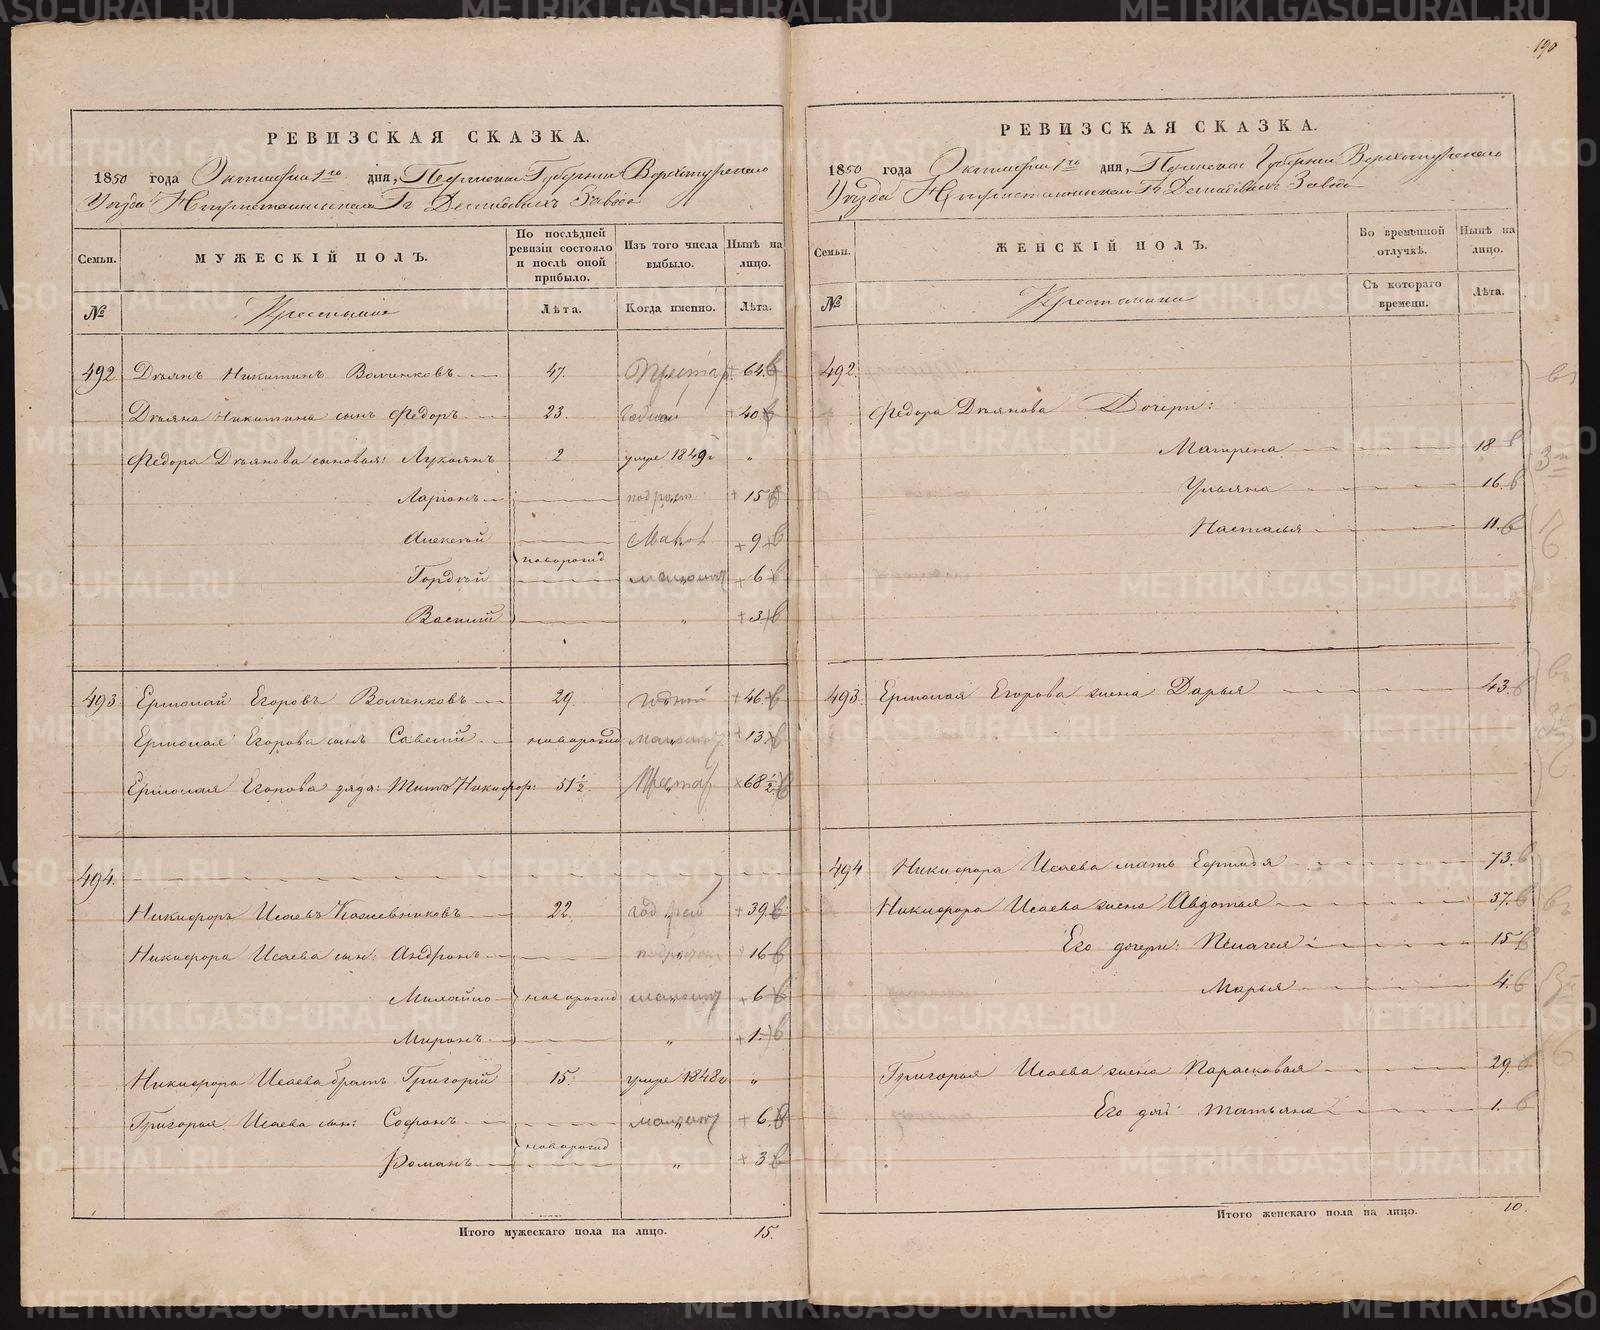 190
РЕВИЗСКАЯ СКАЗКА.
1850 года Октября 1го дня, Пермской Губернии Верхотурскаго
Уѣзда Нижнетагильскаго Гг Демидовыхъ Завода
Семьи. МУЖЕСКІЙ ПОЛЪ. По послѣдней ревизіи состояло и послѣ оной прибыло. Изъ того числа выбыло. Нынѣ на лицо.
№ Крестьяне Лѣта. Когда именно. Лѣта.
492 Демьянъ Никитинъ Волченковъ 47. Престар. 64.
Демьяна Никитина сынъ Федоръ 23. Годной 40
Федора Демьянова сыновья: Лукоянъ 2 умре 1849г „
Ларіонъ подрост 15
Алексѣй Малол 9
новорожд
Гордѣй малолѣт 6
Василій „ 3
493 Ермолай Егоровъ Волченковъ 29. годной 46
Ермолая Егорова сынъ Савелій новорожд малолѣт 13
Ермолая Егорова дядя: Титъ Никифор: 51½ Престар 68½
494.
Никифоръ Исаевъ Кожевниковъ 22. год 39
Никифора Исаева сын: Андронъ подрост 16
Михайло новорожд малолѣт 6
Миронъ „ 1
Никифора Исаева братъ Григорій 15. умре 1848г „
Григорья Исаева сын: Софронъ малолѣт 6.
новорожд
Романъ „ 3
Итого мужескаго пола на лицо. 15.
РЕВИЗСКАЯ СКАЗКА.
1850 года Октября 1го дня, Пермской Губерніи Верхотурскаго
Уѣзда Нижнетагильскаго Гг Демидовыхъ Завода
Семьи. ЖЕНСКІЙ ПОЛЪ. Во временной отлучкѣ. Нынѣ на лицо.
№ Крестьянки Съ котораго времени. Лѣта.
492.
Федора Демьянова Дочери:
Матрена 18
Ульяна 16.
Настасья 11.
493. Ермолая Егорова жена Дарья 43.
494 Никифора Исаева мать Евфимья 73.
Никифора Исаева жена Авдотья 37.
Его дочери: Пелагея 15
Марья 4.
Григорья Исаева жена Парасковья 29.
Его доч: Татьяна 1.
Итого женскаго пола на лицо. 10.
METRIKI.GASO-URAL.RU